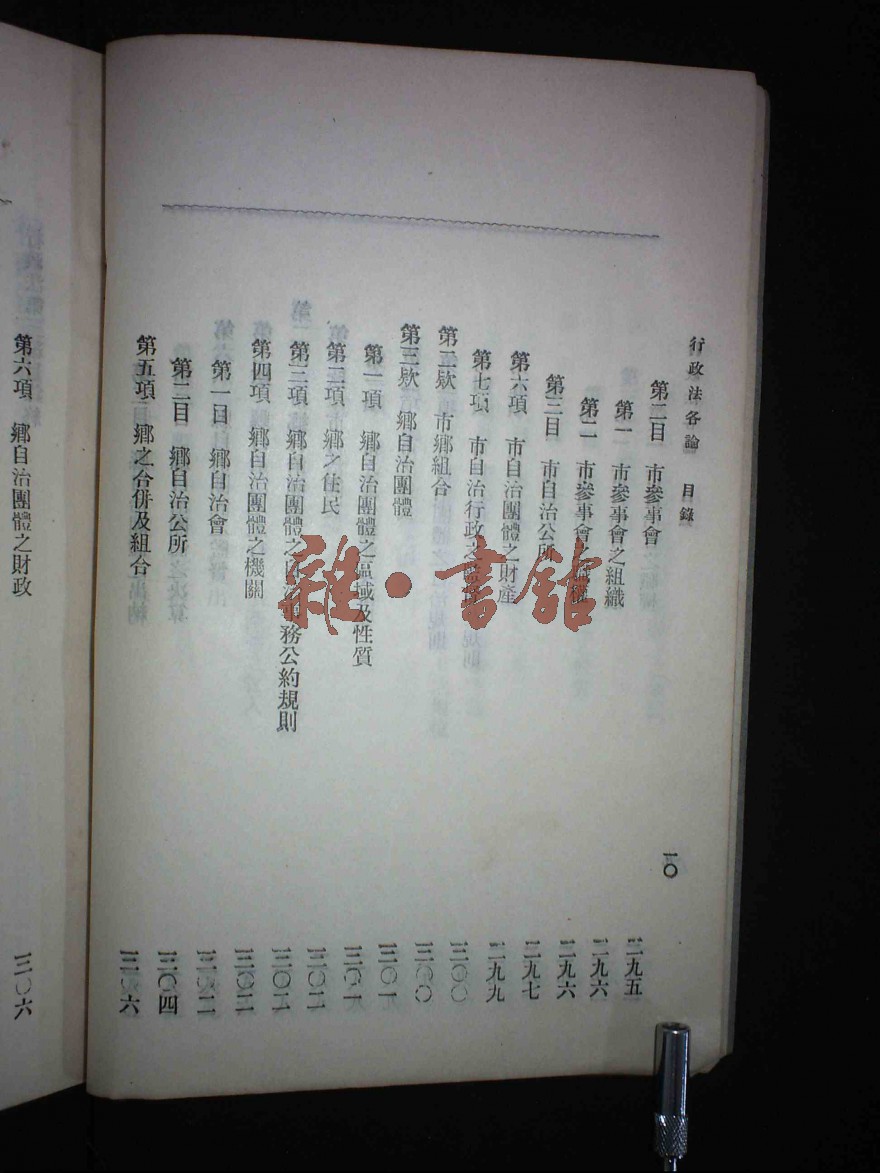 行政法各論 目錄
一〇
第二目 市參事會 二九五
第一 市參事會之組織 二九六
第二 市參事會之職權 二九六
第三目 市自治公所 二九七
第六項 市自治團體之財產 二九九
第七項 市自治行政之監督 三〇〇
第二欵 市鄉組合 三〇〇
第三欵 鄉自治團體 三〇一
第一項 鄉自治團體之區域及性質 三〇一
第二項 鄉之住民
第三項 鄉自治團體之自治事務公約規則
第四項 鄉自治團體之機關
第一目 鄉自治會
第二目 鄉自治公所 三〇四
第五項 鄉之合併及組合 三〇六
第六項 鄉自治團體之財政 三〇六
雜·書館